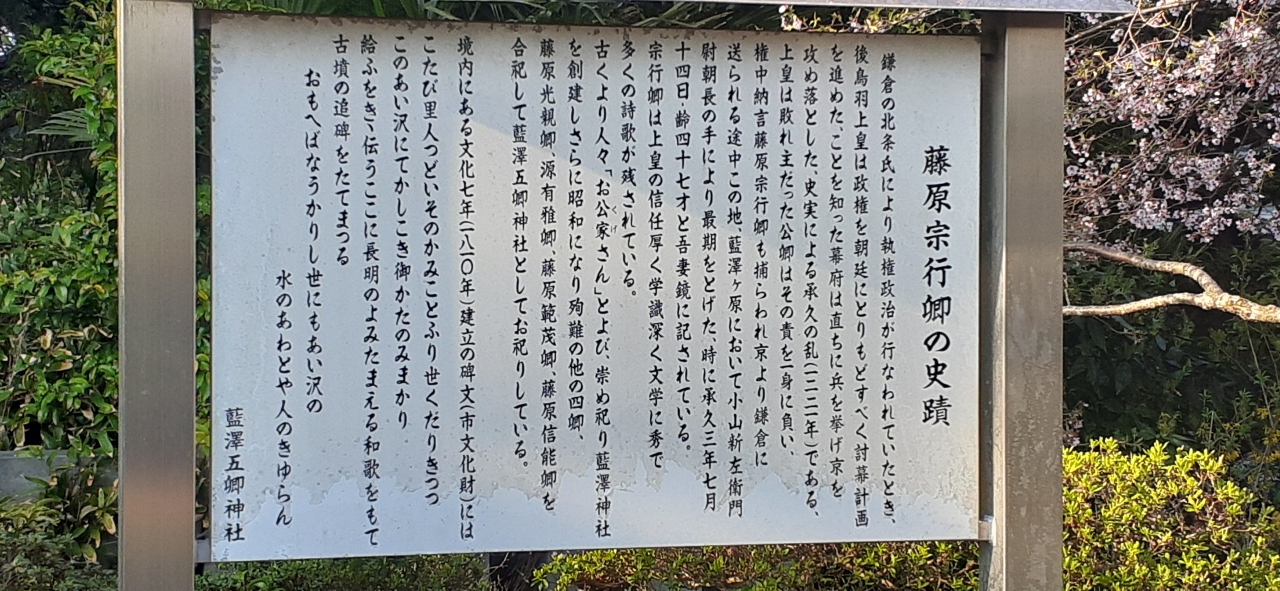 藤原宗行卿の史蹟
鎌倉の北条氏により執権政治が行なわれていたとき、
後鳥羽上皇は政権を朝廷にとりもどすべく討幕計画
を進めた、ことを知った幕府は直ちに兵を挙げ京を
攻め落とした、史実による承久の乱(一二二一年)である、
上皇は敗れ主だった公卿はその責を一身に負い、
権中納言藤原宗行卿も捕らわれ京より鎌倉に
送られる途中この地、藍澤ヶ原において小山新左衛門
尉朝長の手により最期をとげた、時に承久三年七月
十四日・齢四十七才と吾妻鏡に記されている。
宗行卿は上皇の信任厚く学識深く文学に秀で
多くの詩歌が残されている。
古くより人々「お公家さん」とよび、崇め祀り藍澤神社
くげ
を創建しさらに昭和になり殉難の他の四卿、
藤原光親卿、源有雅卿、藤原範茂卿、藤原信能卿を
合祀して藍澤五卿神社としてお祀りしている。
境内にある文化七年(一八一〇年)建立の碑文(市文化財)には
こたび里人つどいそのかみことふり世くだりきつつ
このあい沢にてかしこき御かたのみまかり
給ふをきゝ伝うここに長明のよみたまえる和歌をもて
古墳の追碑をたてまつる
おもへばなうかりし世にもあい沢の
水のあわとや人のきゆらん
藍澤五卿神社